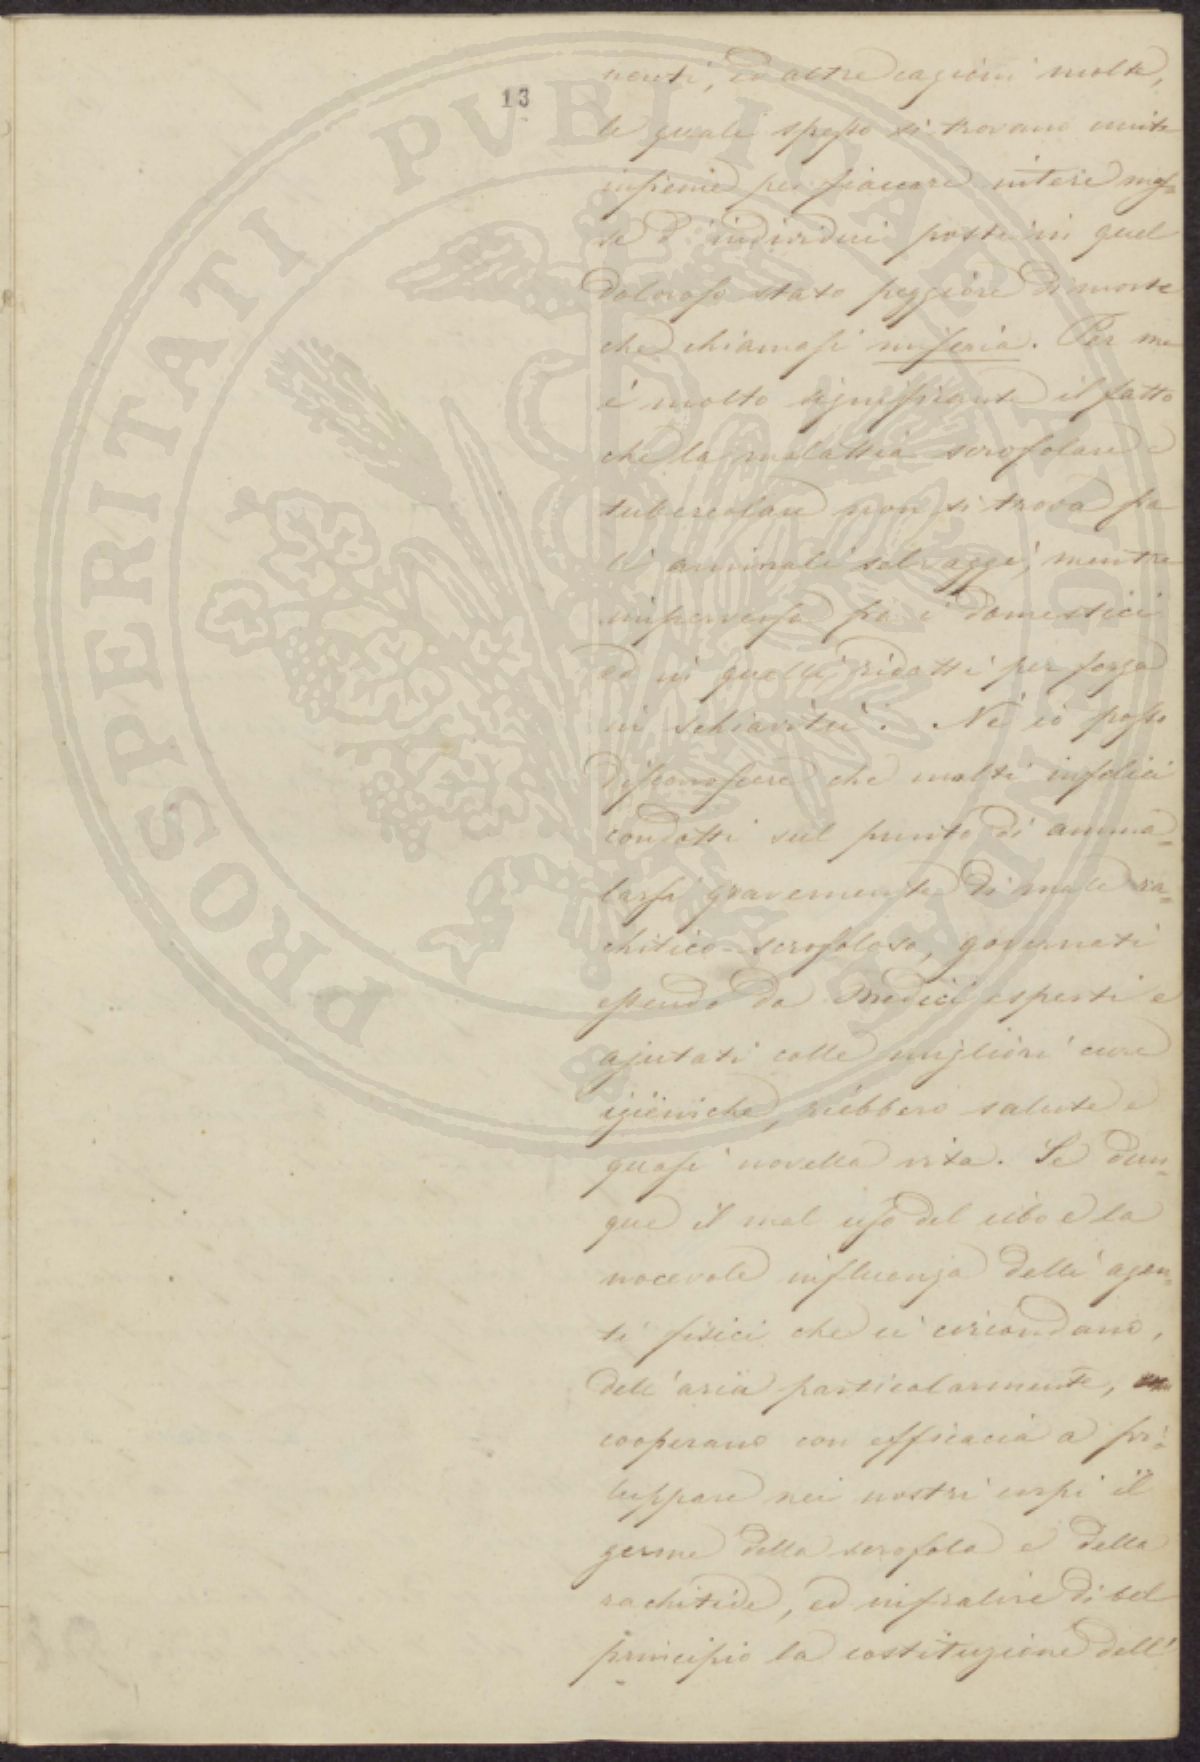 13
nenti, ed altre cagioni molte,
le quali spesso si trovano unite
insieme per fiaccare intere mas=
se d'individui posti in quel
doloroso stato peggiore di morte
che chiamasi miseria. Per me
é molto significante il fatto
che la malattia scrofolare e
tubercolare non si trova fra
li animali selvaggi, mentre
imperversa fra i domestici
ed in quelli ridotti per forza
in schiavitù. Né io posso
disconoscere che molti infelici
condotti sul punto di amma=
larsi gravemente di male ra=
chitico-scrofoloso, governati
essendo da Medici esperti e
ajutati colle migliori cure
igieniche, riebbero salute e
quasi novella vita. Se dun=
que il mal uso del cibo e la
nocevole influenza delli agen=
ti fisici che ci circondano,
dell'aria particolarmente,
cooperano con efficacia a svi=
luppare nei nostri corpi il
germe della scrofola e della
rachitide, ed infralire di bel
principio la costituzione dell'
PROSPERITATI PVBLICAE AVGENDAE